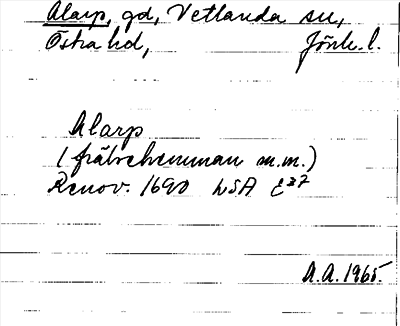 Alarp, gd, Vetlanda sn,
Östra hd, Jönk. l.
Alarp
(frälsehemman m.m.)
Renov. 1690 LSA E 37
A.A. 1965.